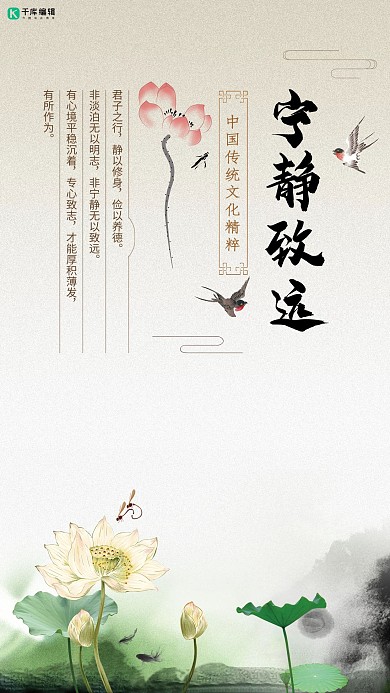 千库编辑
宁静致远
中国传统文化精粹
君子之行，静以修身，俭以养德。
非淡泊无以明志，非宁静无以致远。
有心境平稳沉着，专心致志，才能厚积薄发，
有所作为。